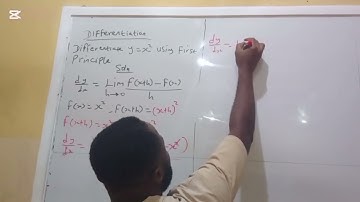 CapCut
Differentiation
Differentiate y = x² using First
Principle
Soln
dy/dx = Lim h→0 F(x+h) - F(x) / h
F(x) = x², F(x+h) = (x+h)²
F(x+h) =
dy/dx =
dy/dx =